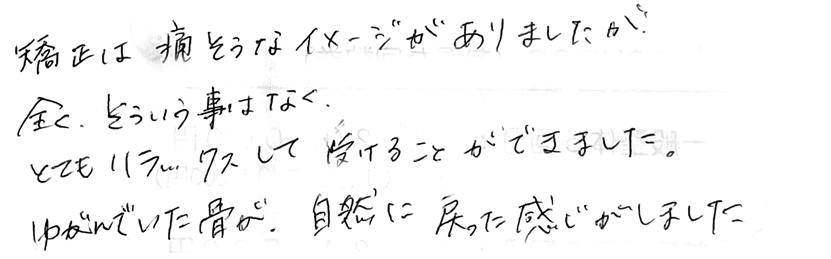 矯正は痛そうなイメージがありましたが、
全く、そういう事はなく、
とてもリラックスして受けることができました。
ゆがんでいた骨が、自然に戻った感じがしました